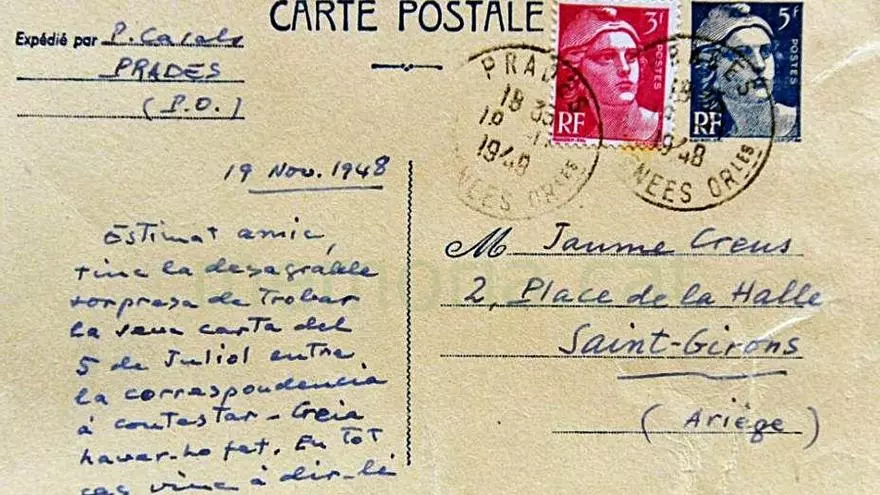 CARTE POSTALE
Expédié par P. Casals
PRADES
(P.O.)
3F
POSTES
RF
5F
POSTES
RF
PRADES
18 35
1948
NEES ORLES
1948
NEES ORLES
19 Nov. 1948
Estimat amic,
tinc la desagrable
sorpresa de trobar
la seva carta del
5 de Juliol entre
la correspondencia
à contestar - Creia
haver-ho fet. En tot
cas vinc à dir-li
M Jaume Creus
2, Place de la Halle
Saint-Girons
(Ariège)